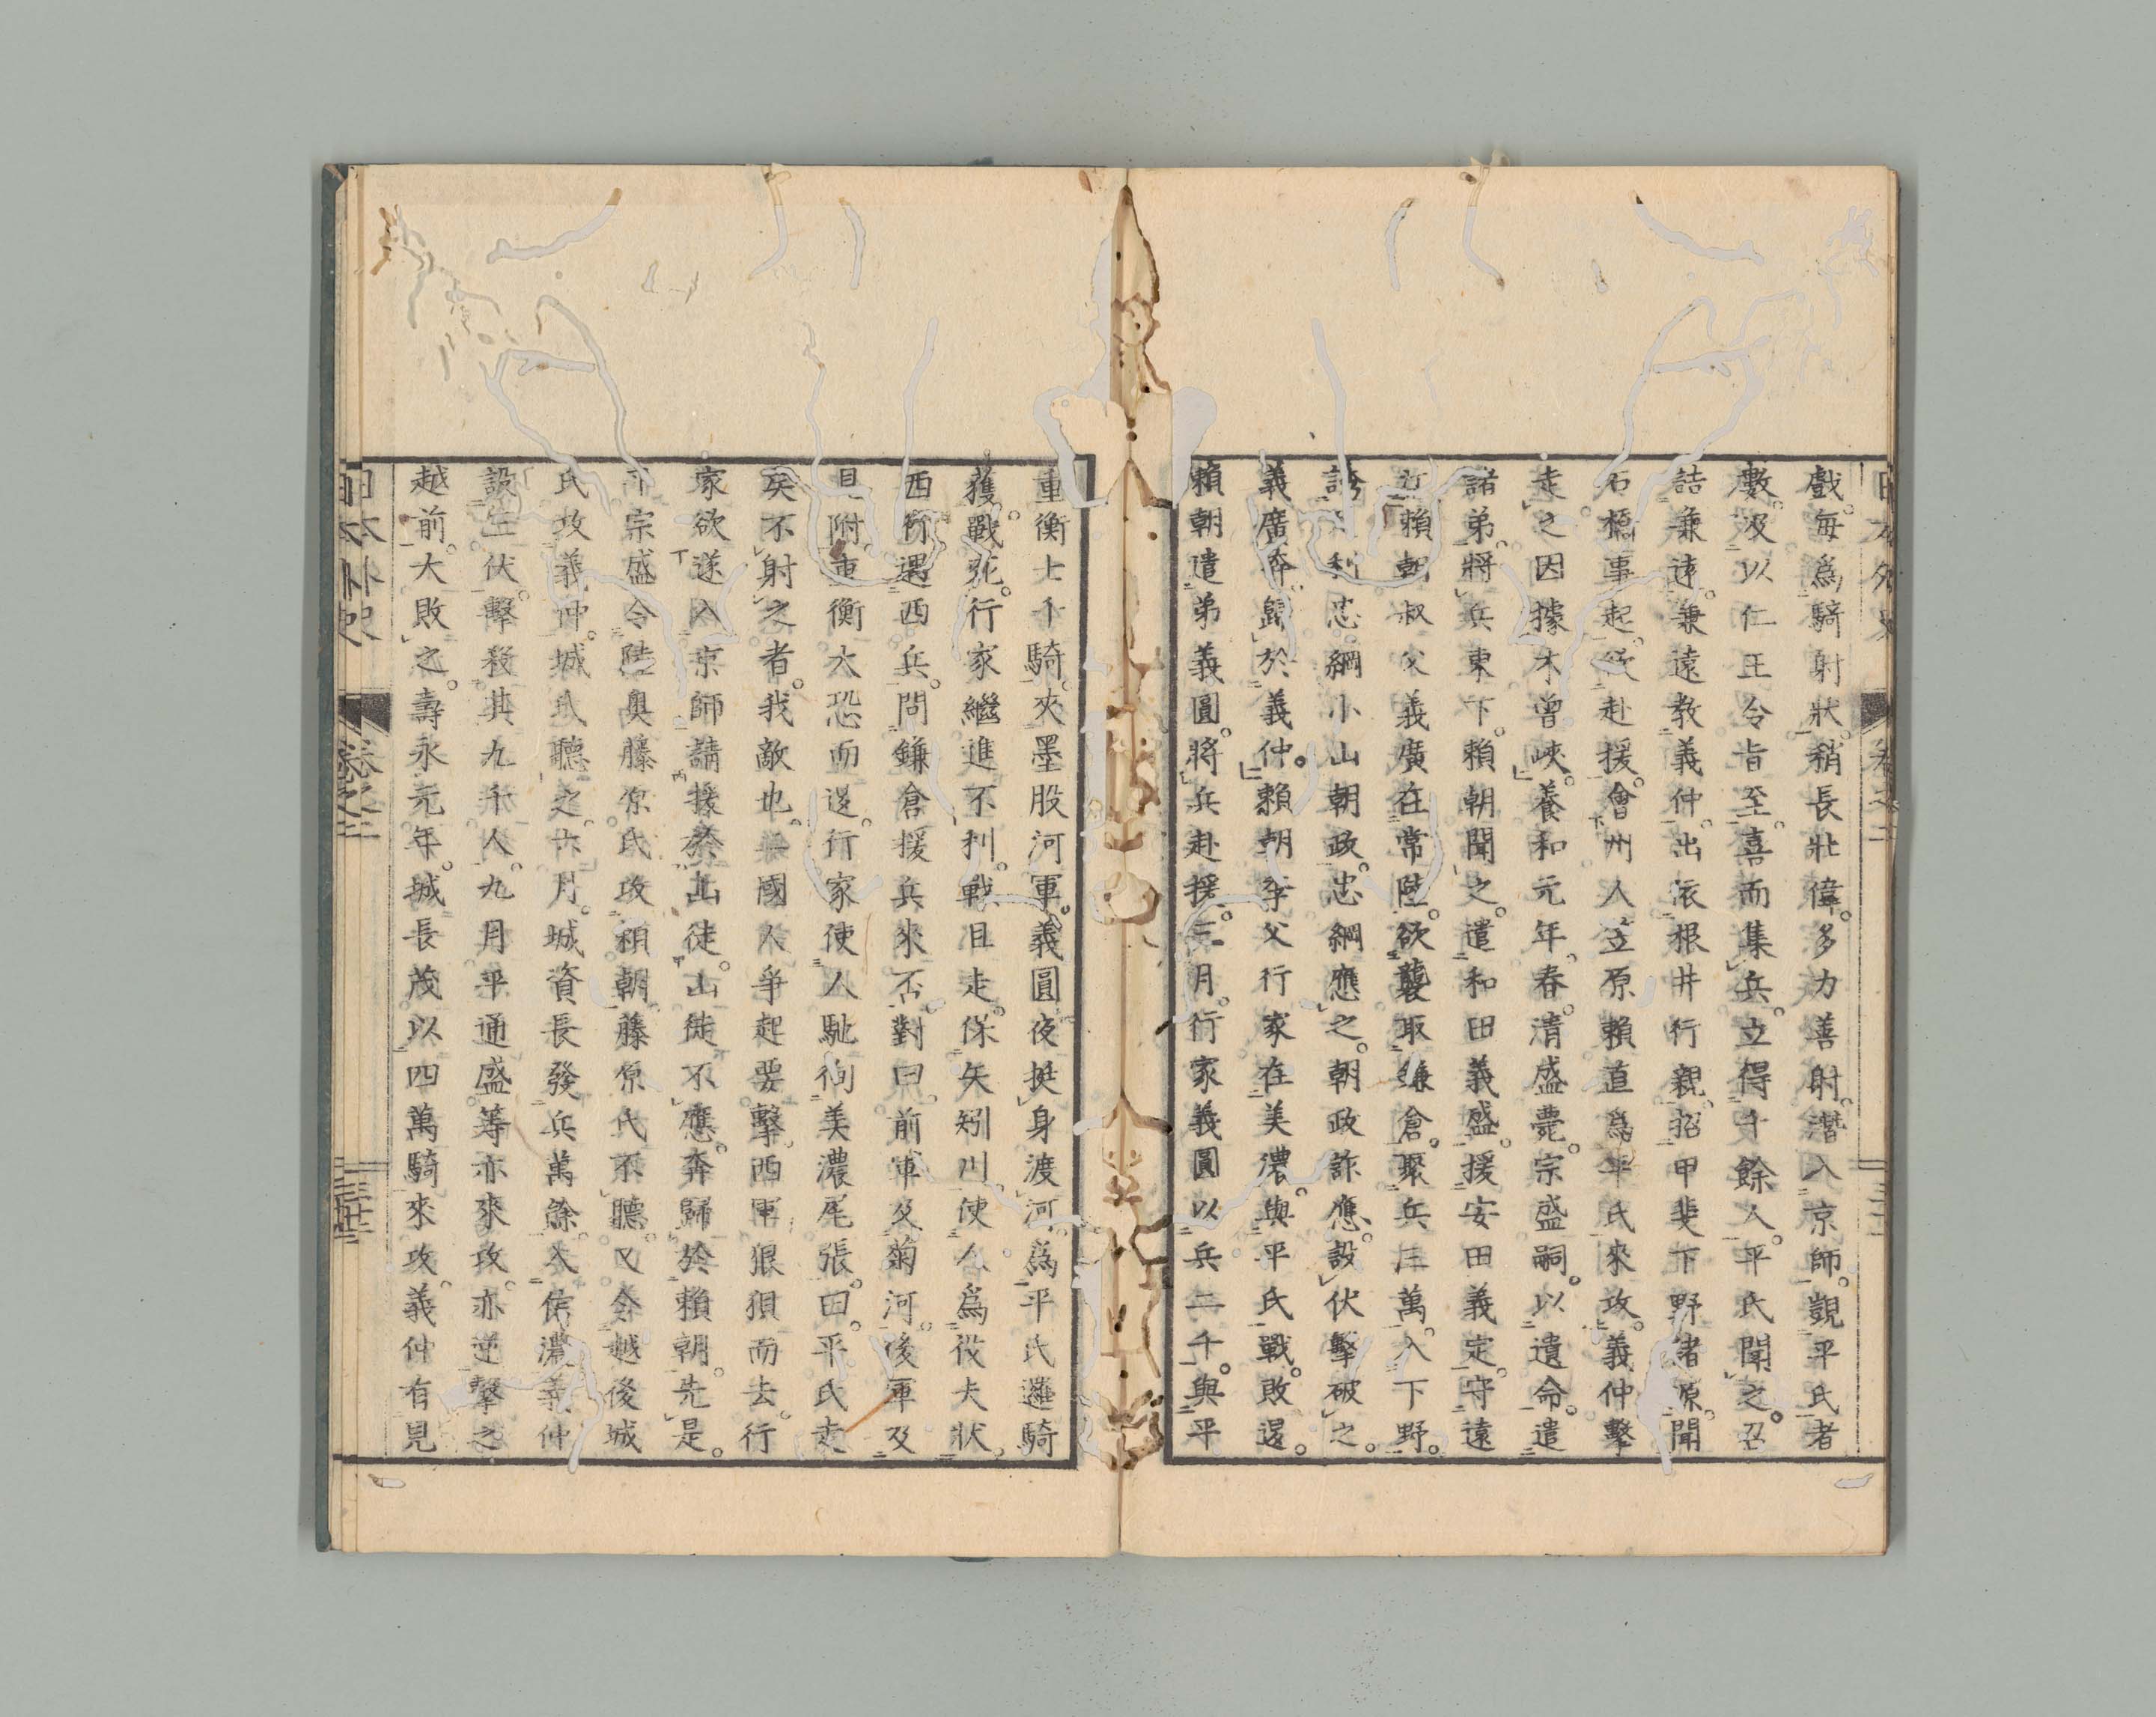 戲。每爲騎射狀。稍長壯偉。多力善射。潛入京師。覬平氏者
數。及以仁王令旨至。喜而集兵。立得千餘人。平氏聞之。召
詰兼遠。兼遠教義仲。出依根井行親。招甲斐下野諸源。聞
石橋事起。欲赴援。會州人笠原賴直爲平氏來攻。義仲擊
走之。因據木曾峽。養和元年。春。清盛薨。宗盛嗣。以遺命。遣
諸弟。將兵東下。賴朝聞之。遣和田義盛。援安田義定。守遠
江。賴朝叔父義廣在常陸。欲襲取鎌倉。聚兵三萬。入下野。
誘足利忠綱小山朝政。忠綱應之。朝政詐應。設伏擊破之。
義廣奔歸於義仲。賴朝季父行家在美濃。與平氏戰。敗還。
賴朝遣弟義圓。將兵赴援。三月。行家義圓以兵二千。與平
重衡七千騎。夾墨股河軍。義圓夜挺身渡河。爲平氏邏騎
獲。戰死。行家繼進不利。戰且走。保矢矧川。使人爲役夫狀。
西行遇西兵。問鎌倉援兵來否。對曰。前軍及菊河。後軍及
見附。重衡大恐而還。行家使人馳徇美濃尾張。曰。平氏走
矣。不射之者。我敵也。兩國人爭起要擊。西軍狼狽而去。行
家欲遂入京師。請援叡山徒。山徒不應。奔歸於賴朝。先是。
平宗盛令陸奧藤原氏攻賴朝。藤原氏不聽。又令越後城
氏攻義仲。城氏聽之。六月。城資長發兵萬餘。入信濃。義仲
設三伏。擊殺其九千人。九月平通盛等亦來攻。亦逆擊之
越前。大敗之。壽永元年。城長茂以四萬騎來攻。義仲有見
日本外史 卷之二